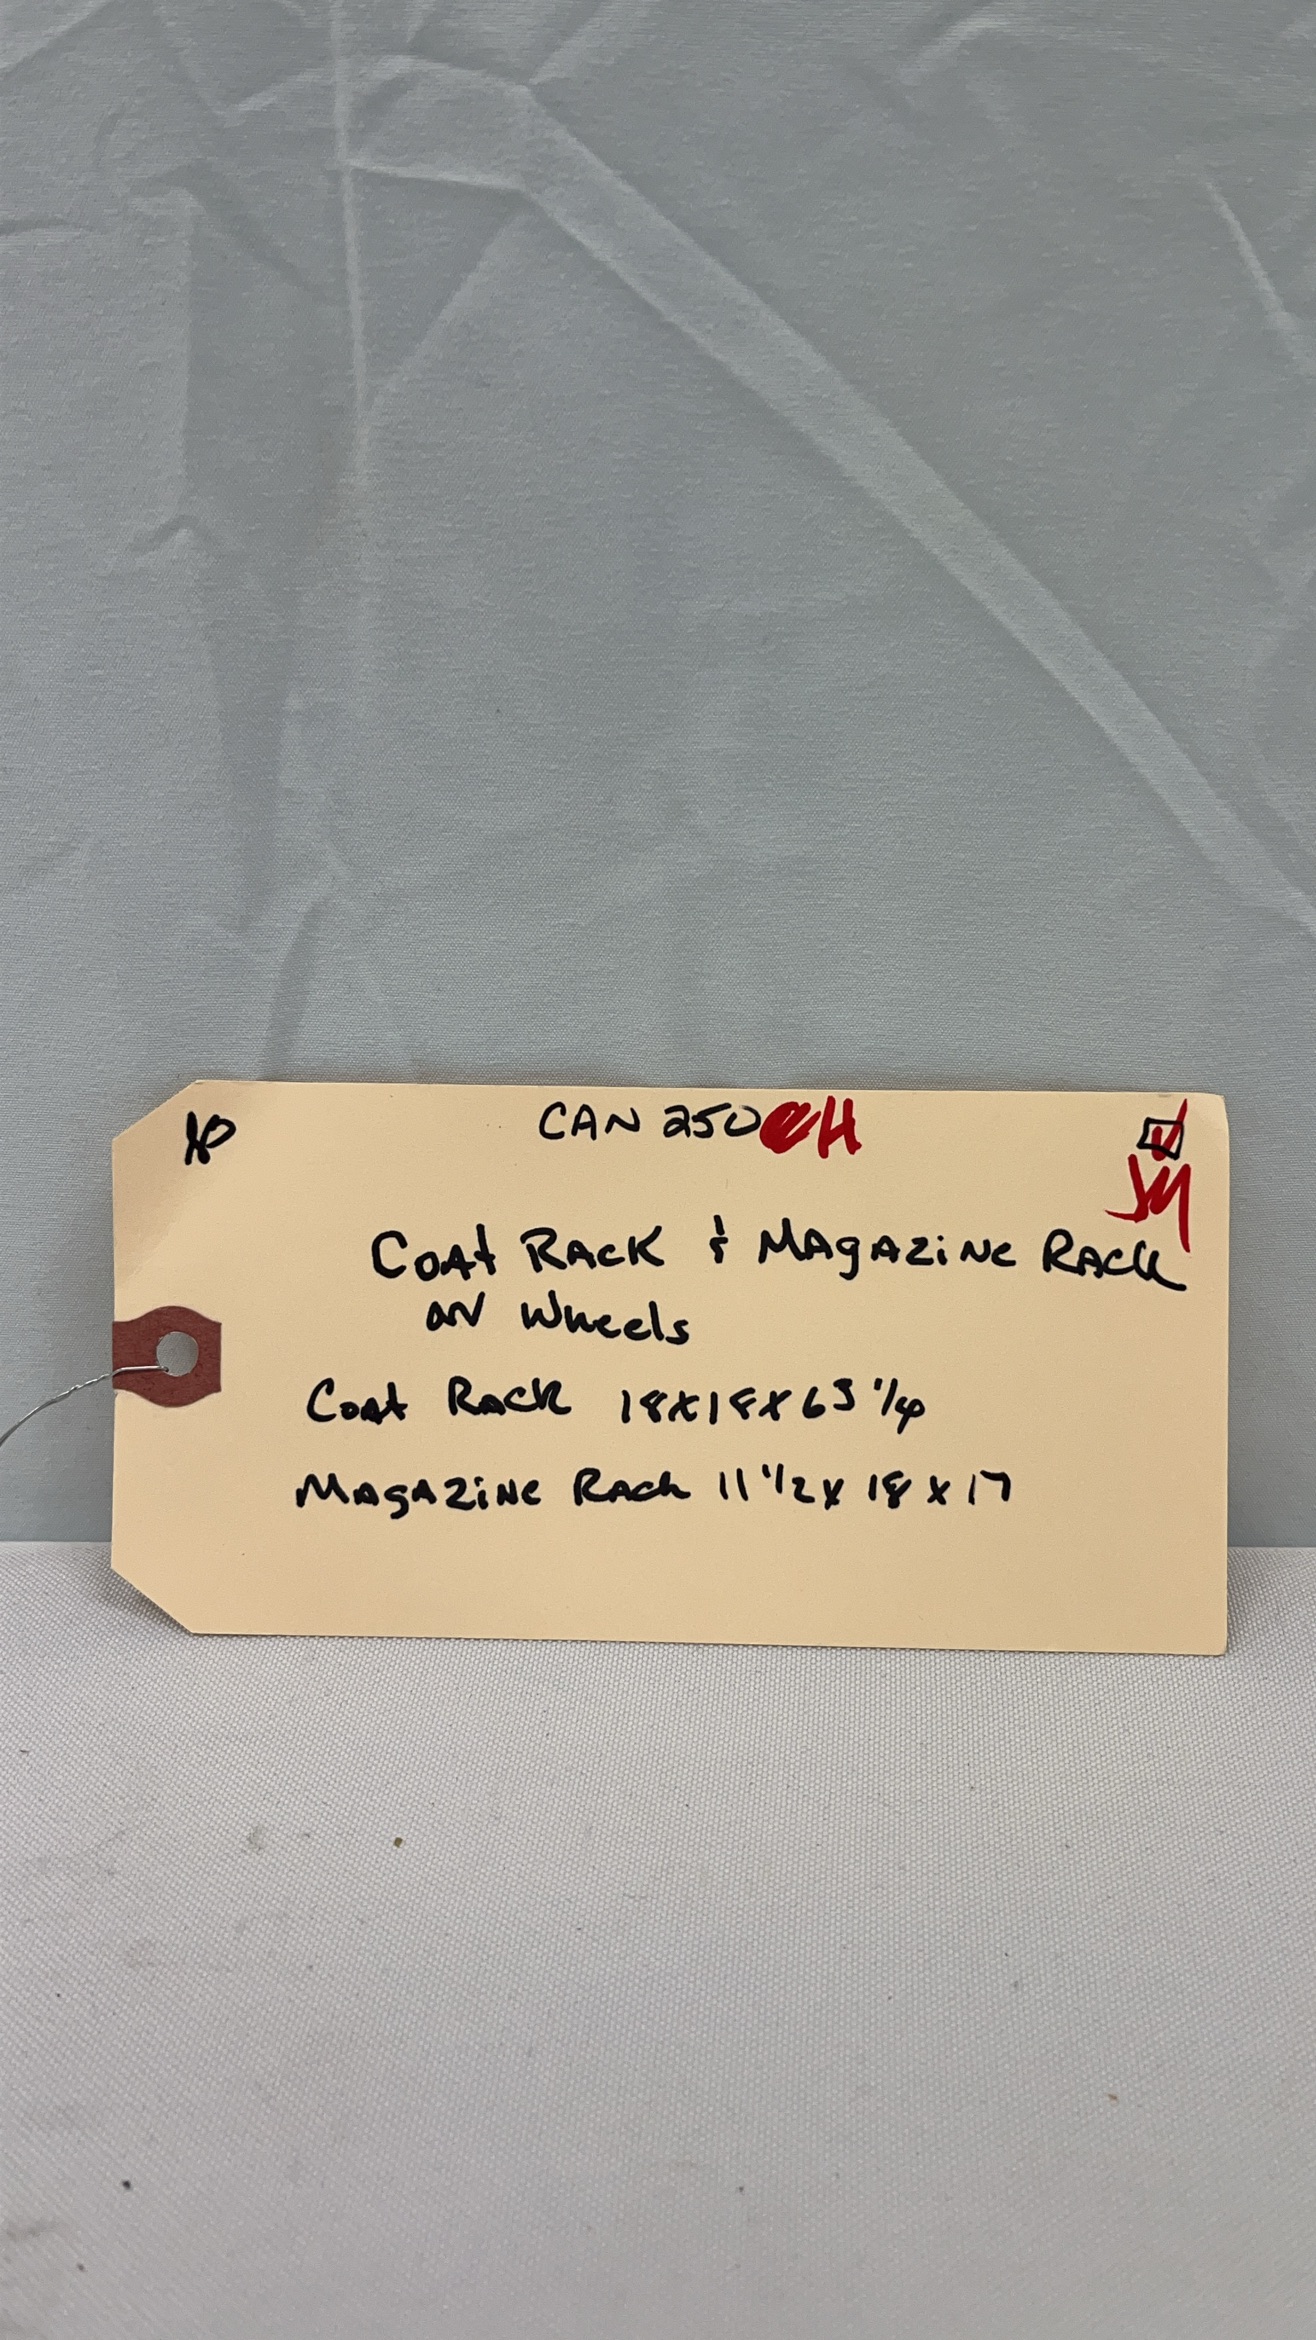 CAN 250 H
Coat Rack & Magazine Rack
on Wheels
Coat Rack 18x18x63 1/4
Magazine Rack 11 1/2 x 18 x 17